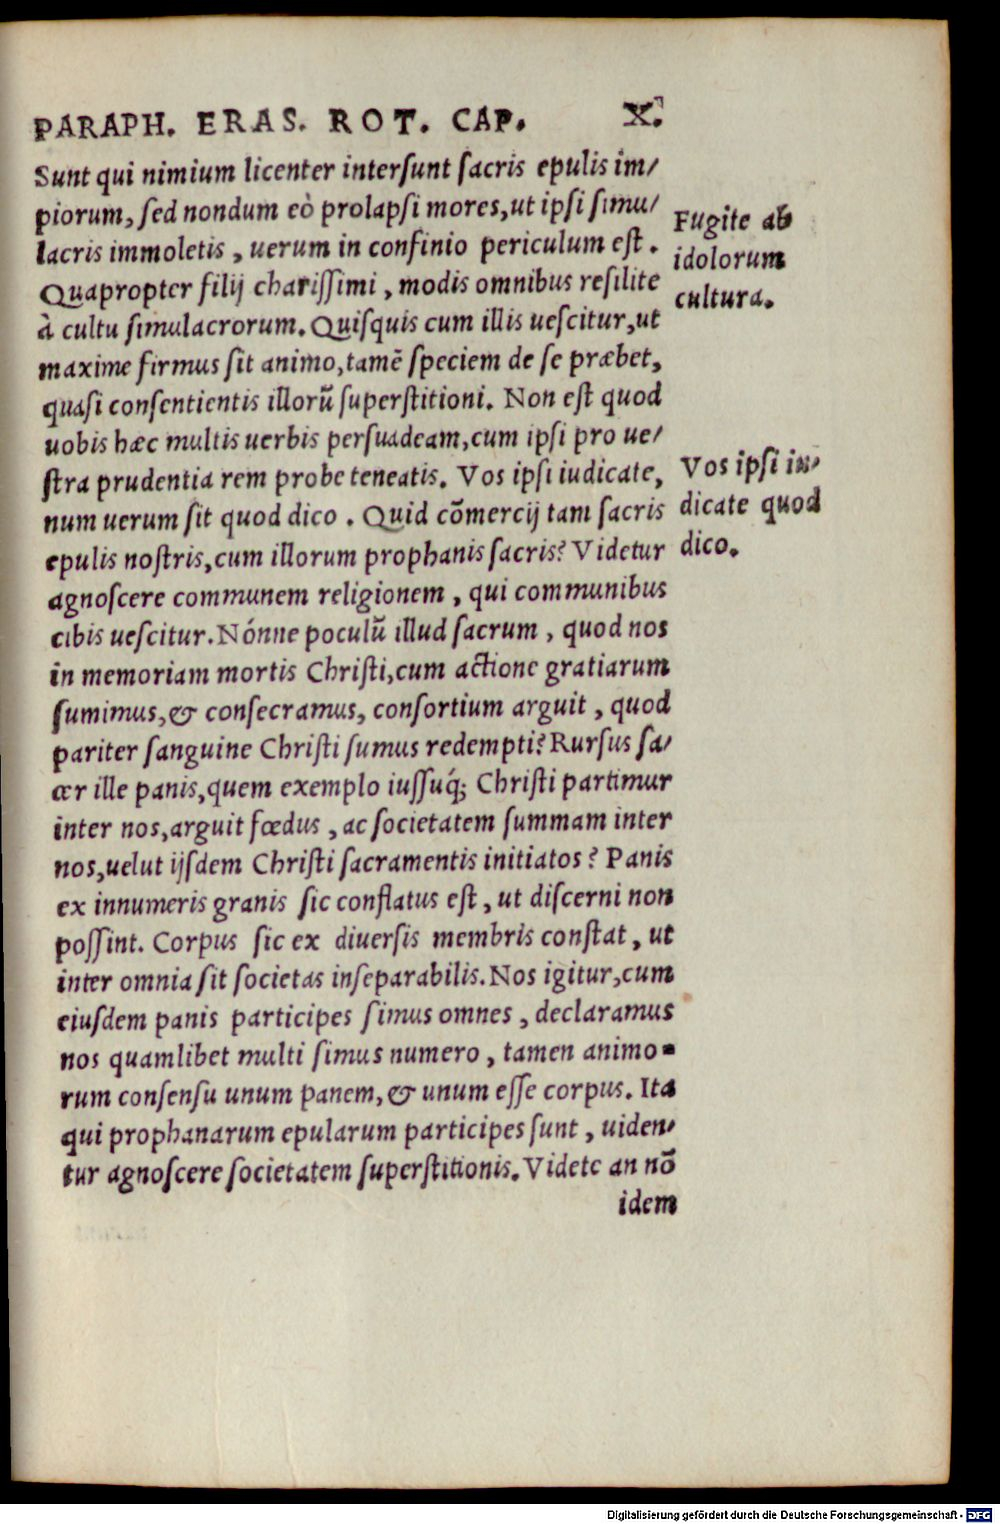 PARAPH. ERAS. ROT. CAP. X.
Sunt qui nimium licenter intersunt sacris epulis im/
piorum, sed nondum eò prolapsi mores, ut ipsi simu/
lacris immoletis, uerum in confinio periculum est.
Quapropter filij charissimi, modis omnibus resilite
à cultu simulacrorum. Quisquis cum illis uescitur, ut
maxime firmus sit animo, tamē speciem de se præbet,
quasi consentientis illorū superstitioni. Non est quod
uobis hæc multis uerbis persuadeam, cum ipsi pro ue/
stra prudentia rem probe teneatis. Vos ipsi iudicate,
num uerum sit quod dico. Quid cōmercij tam sacris
epulis nostris, cum illorum prophanis sacris? Videtur
agnoscere communem religionem, qui communibus
cibis uescitur. Nónne poculū illud sacrum, quod nos
in memoriam mortis Christi, cum actione gratiarum
sumimus, & consecramus, consortium arguit, quod
pariter sanguine Christi sumus redempti? Rursus sa/
cer ille panis, quem exemplo iussuq́; Christi partimur
inter nos, arguit fœdus, ac societatem summam inter
nos, uelut ijsdem Christi sacramentis initiatos? Panis
ex innumeris granis sic conflatus est, ut discerni non
possint. Corpus sic ex diuersis membris constat, ut
inter omnia sit societas inseparabilis. Nos igitur, cum
eiusdem panis participes simus omnes, declaramus
nos quamlibet multi simus numero, tamen animo-
rum consensu unum panem, & unum esse corpus. Ita
qui prophanarum epularum participes sunt, uiden/
tur agnoscere societatem superstitionis. Videte an nō
idem
Fugite ab
idolorum
cultura.
Vos ipsi iu/
dicate quod
dico.
Digitalisierung gefördert durch die Deutsche Forschungsgemeinschaft - DFG